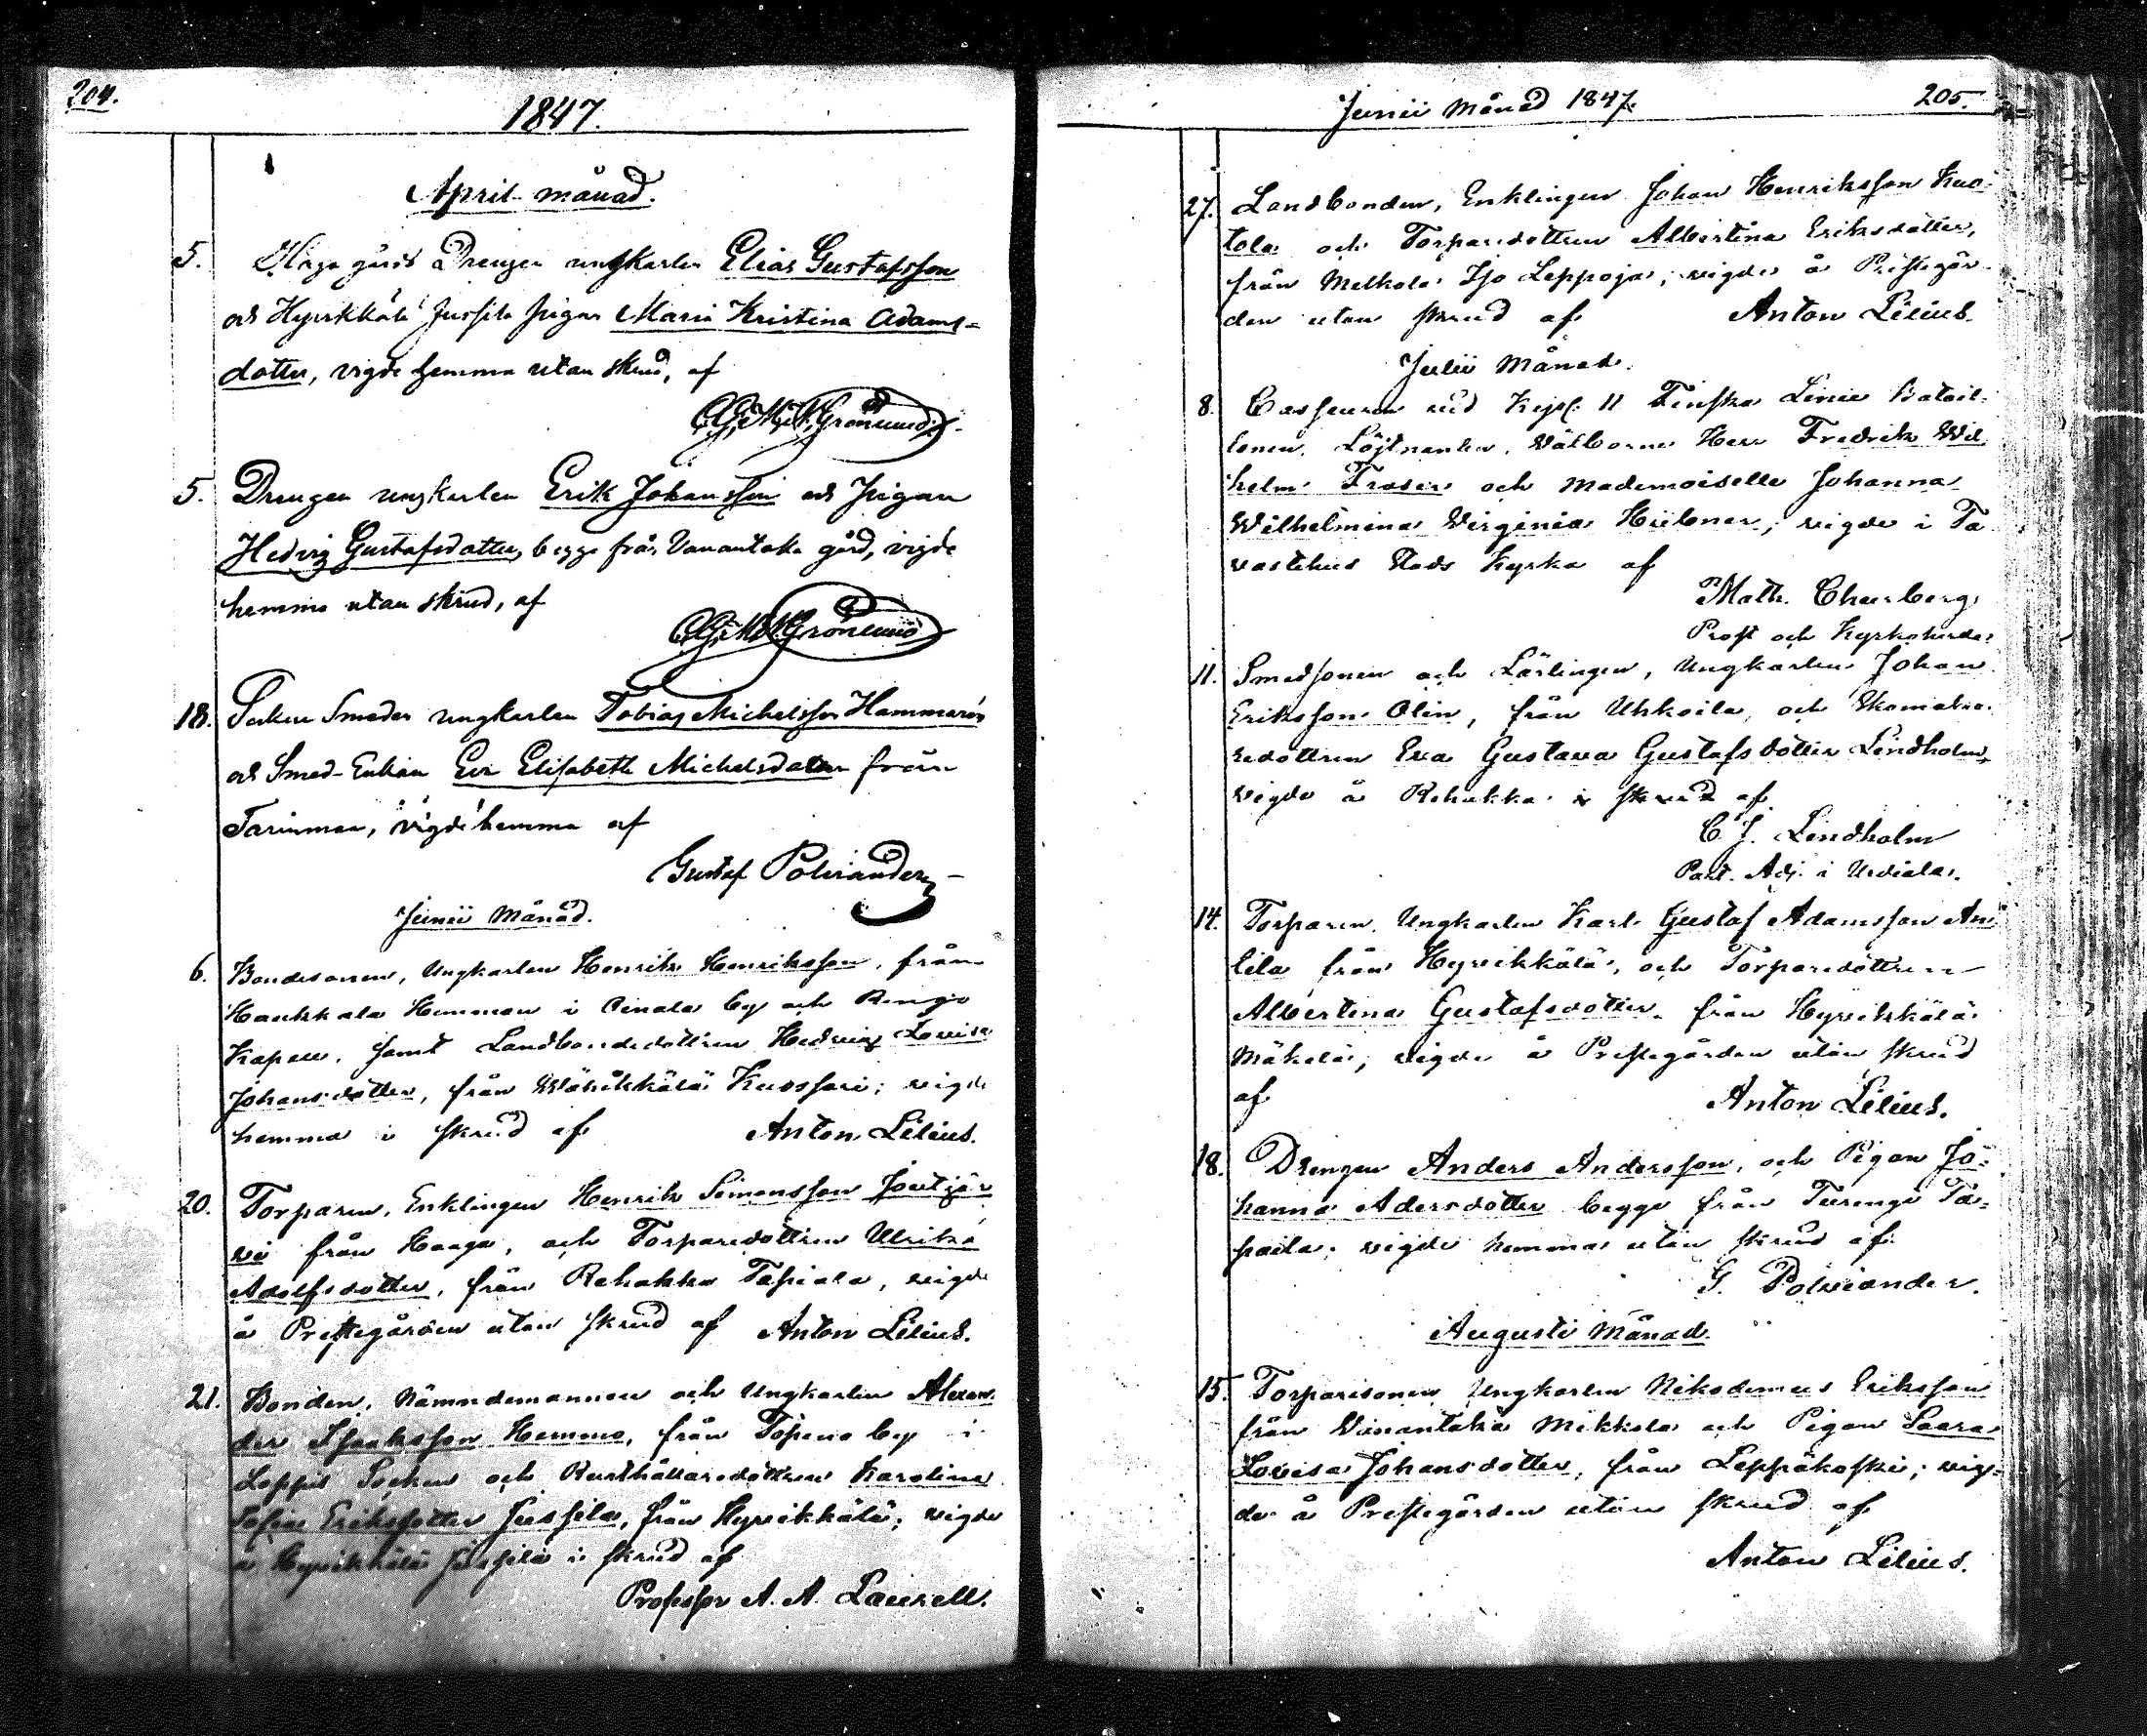 204.
1847.
April månad.
5. Haga gårds Drengen ungkarlen Elias Gustafsson
och Hyvikkälä Jussila pigan Maria Kristina Adams-
dotter, vigde hemma utan skrud, af
Grönlund
5. Drengen ungkarlen Erik Johansson och Pigan
Hedvig Gustafsdotter, begge från Vanantaka gård, vigde
hemma utan skrud, af
Grönlund
18. Socken Smeden ungkarlen Tobias Michelsson Hammarén
och Smed-Enkan Eva Elisabeth Michelsdotter från
Tarinmaa, vigde hemma af
Gustaf Polviander
Junii Månad.
6. Bondesonen, Ungkarlen Henrik Henriksson, från
Haukkala Hemman i Oinala by och Rengo
Kapell, samt Landbondedottren Hedvig Lovisa
Johansdotter, från Wähikkälä Kuossari; vigde
hemma i skrud af Anton Lilius.
20. Torparen, Enklingen Henrik Simonsson Joutjär
vi från Haaga, och Torparedottren Ulrika
Adolfsdotter, från Rehakka Tapiala, vigde
å Prestegården utan skrud af Anton Lilius.
21. Bonden, Nämndemannen och Ungkarlen Alexan-
der Isaaksson Hemmo, från Topeno by i
Loppis Socken och Rusthållaredottren Karolina
Sofia Eriksdotter Jussila, från Hyvikkälä; vigde
å Hyvikkälä Jussila i skrud af
Professor A. A. Laurell.
Junii Månad 1847.
205.
27. Landbonden, Enklingen Johan Henriksson Kuo-
tola och Torparedottren Albertina Eriksdotter,
från Melkola Iso Leppoja; vigde å Prestegår-
den utan skrud af Anton Lilius.
Julii Månad.
8. Casseuren vid Kejs. 11 Finska Linie Batail-
lonen, Löjtnanten, Välborne Herr Fredrik Wil
helm Fraser och Mademoiselle Johanna
Wilhelmina Virginia Hübner; vigde i Ta
vastehus Stads Kyrka af
Math. Churberg
Prost och Kyrkoherde.
11. Smedsonen och Lärlingen, Ungkarlen Johan
Eriksson Olin, från Uhkoila, och Skomaka-
redottren Eva Gustava Gustafsdotter Lindholm,
vigde å Rehakka i skrud af
C. J. Lindholm
Past. Adj. i Urdiala.
14. Torparen, Ungkarlen Karl Gustaf Adamsson An
tila från Hyvikkälä, och Torparedottren
Albertina Gustafsdotter från Hyvikkälä
Mäkelä; vigde å Prestegården utan skrud
af Anton Lilius.
18. Drengen Anders Andersson, och Pigan Jo-
hanna Adersdotter begge från Turengi Ta-
paila; vigde hemma utan skrud af
G. Polviander.
Augusti Månad.
15. Torparesonen Ungkarlen Nikodemus Eriksson
från Vanantaka Mikkola och Pigan Saara
Lovisa Johansdotter, från Leppäkoski; vig-
de å Prestegården utan skrud af
Anton Lilius.